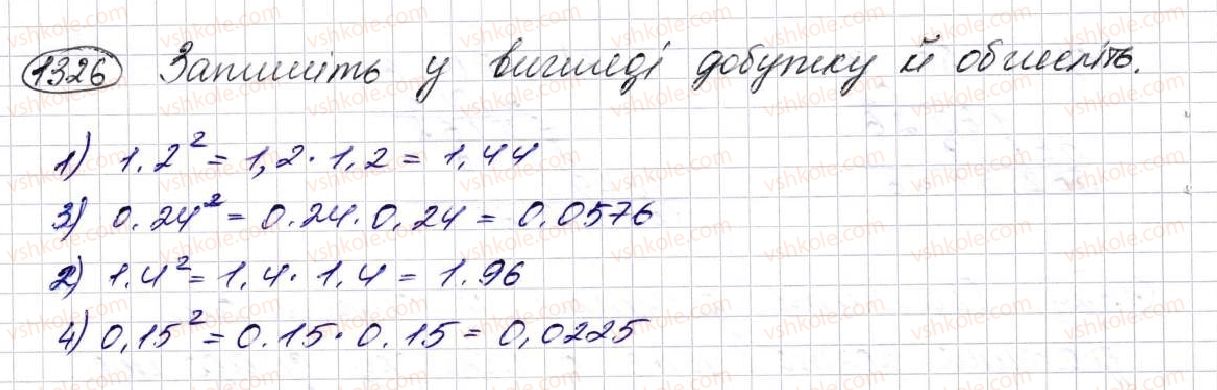 1326 Запишіть у вигляді добутку й обчисліть.
1) 1.2² = 1,2 · 1,2 = 1,44
3) 0.24² = 0.24 · 0,24 = 0,0576
2) 1.4² = 1,4 · 1,4 = 1.96
4) 0,15² = 0.15 · 0.15 = 0,0225